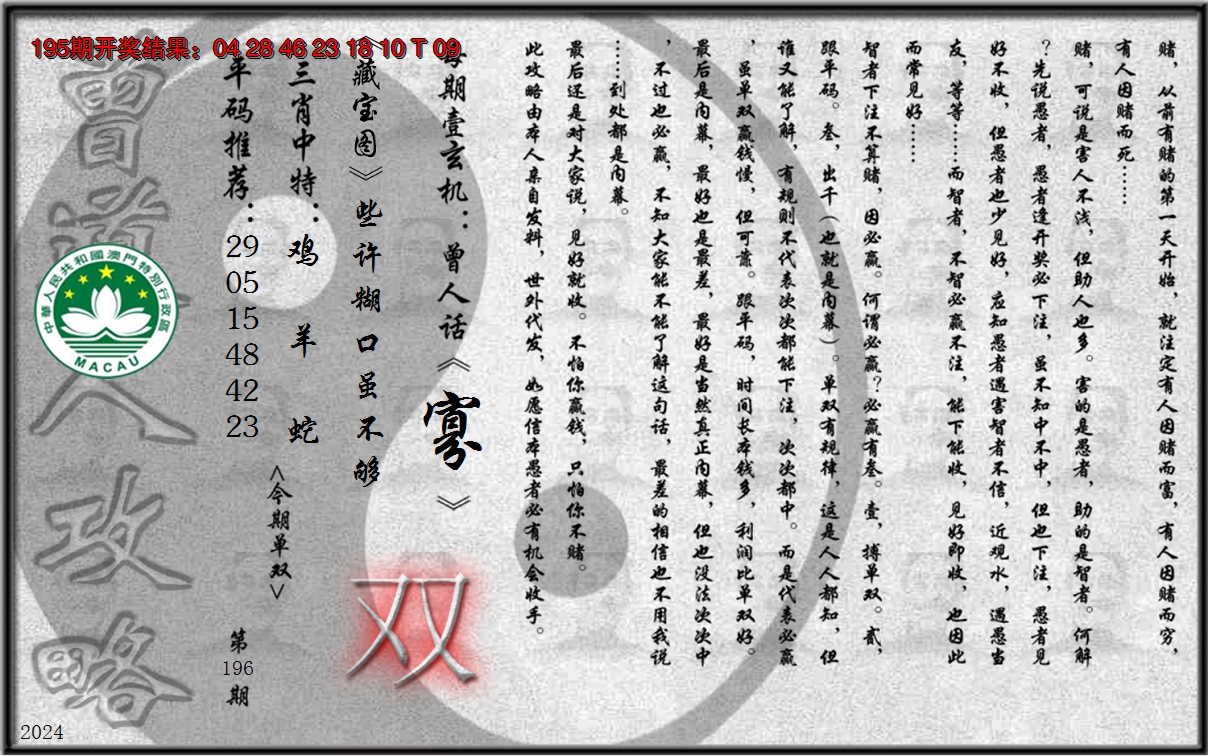 195期开奖结果：04 28 46 23 18 10 T 09
赌，从前有赌的第一天开始，就注定有人因赌而富，有人因赌而穷，
有人因赌而死……
赌，可说是害人不浅，但助人也多。害的是愚者，助的是智者。何解
？先说愚者，愚者逢开奖必下注，虽不知中不中，但也下注，愚者见
好不收，但愚者也少见好，应知愚者遇害智者不信，近观水，遇愚当
友，等等……而智者，不智必赢不注，能下能收，见好即收，也因此
而常见好……
智者下注不算赌，因必赢。何谓必赢？必赢有叁。壹，搏单双。贰，
跟平码。叁，出千（也就是内幕）。单双有规律，这是人人都知，但
谁又能了解，有规则不代表次次都能下注，次次都中。而是代表必赢
，虽单双赢钱慢，但可靠。跟平码，时间长本钱多，利润比单双好。
最后是内幕，最好也是最差，最好是当然真正内幕，但也没法次次中
，不过也必赢，不知大家能不能了解这句话，最差的相信也不用我说
……到处都是内幕。
最后还是对大家说，见好就收。不怕你赢钱，只怕你不赌。
此攻略由本人亲自发料，世外代发，如愿信本愚者必有机会收手。
每期壹玄机：曾人话《寡》
《藏宝图》些许糊口虽不够
双
三肖中特：鸡 羊 蛇
<今期单双>
平码推荐：29 05 15 48 42 23
第196期
曾道人攻略
中華人民共和國澳門特別行政區
MACAU
2024